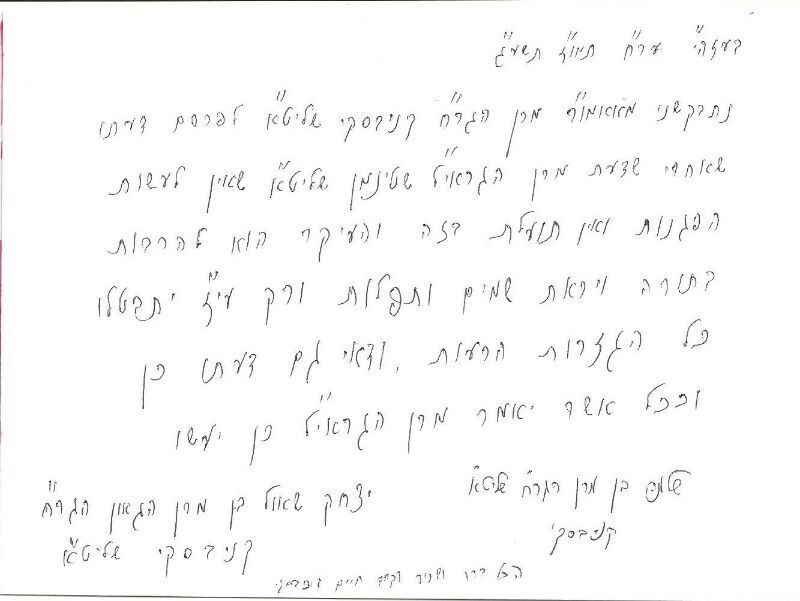 בעזהי"ת ער"ח תמוז תשע"ג
נתבקשתי מאאמו"ר מרן הגר"ח קניבסקי שליט"א לפרסם דעתו
שאחרי שדעת מרן הגראי"ל שטינמן שליט"א שאין לעשות
הפגנות ואין תועלת בזה והעיקר הוא להרבות
בתורה ויראת שמים ותפלות ורק עי"ז יתבטלו
כל הגזרות הרעות, ודאי גם דעתו כן
וככל אשר יאמר מרן הגראי"ל כן יעשו
שלמה בן מרן הגר"ח שליט"א
קניבסקי
יצחק שאול בן מרן הגאון הגר"ח
קניבסקי שליט"א
הכל ברור ושריר וקים חיים קניבסקי